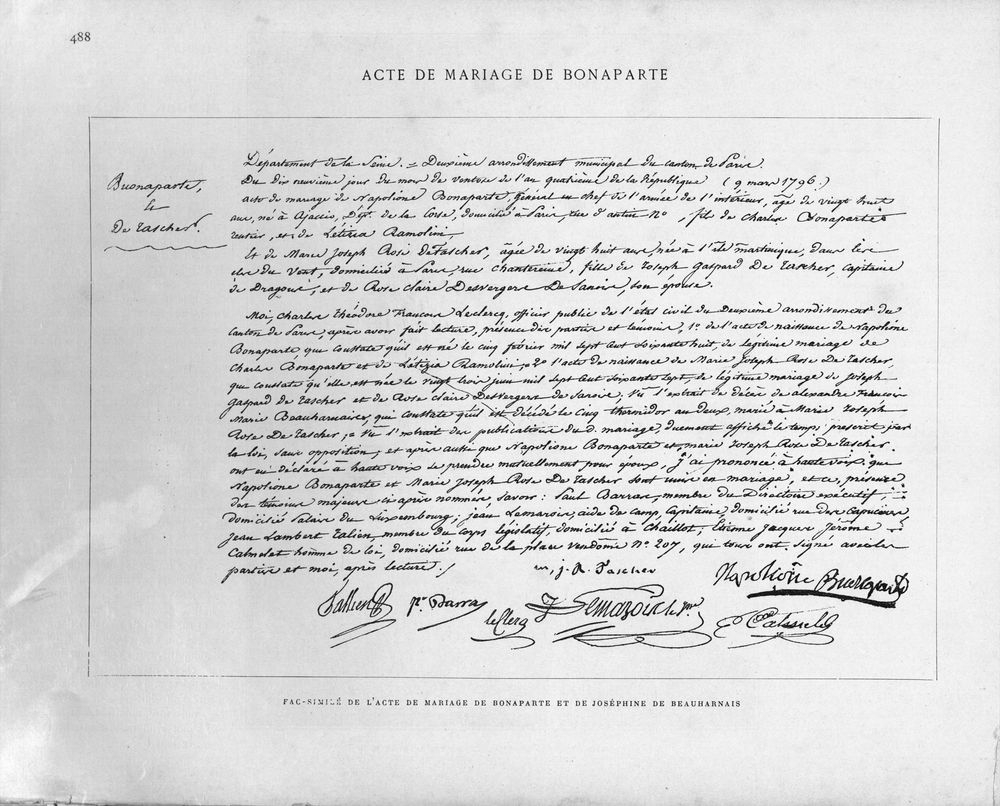 488
ACTE DE MARIAGE DE BONAPARTE
Buonaparte,
&
De Tascher.
Département de la Seine. = Deuxième arrondissement municipal du canton de Paris.
Du dix neuvième jour du mois de ventose de l'an quatrième de la République (9 mars 1796.)
acte de mariage de Napolione Bonaparte, Général en chef de l'armée de l'intérieur, âgé de vingt huit
ans, né à Ajaccio, Dépt. de la Corse, domicilié à Paris rue d'antin No , fils de Charles Bonaparte
rentier, et de Letizia Ramolini,
Et de Marie Joseph Rose de Tascher, âgée de vingt huit ans, née à l'ile martinique, dans les
iles du Vent, domiciliée à Paris, rue chantereine, fille de Joseph Gaspard De Tascher, Capitaine
de Dragons, et de Rose Claire Desvergers De Sanois, son épouse.
Moi, Charles Théodore François Leclercq, officier public de l'état civil du Deuxième arrondissement du
Canton de Paris, après avoir fait lecture, présence des parties et témoins, 1o. de l'acte de naissance de Napolione
Bonaparte qui constate qu'il est né le cinq février mil sept cent soixante huit, de légitime mariage de
Charles Bonaparte et de Létizia Ramolini, = 2o l'acte de naissance de Marie Joseph Rose De Tascher,
qui constate qu'elle est née le vingt trois juin mil sept cent soixante sept, de légitime mariage de Joseph
Gaspard De Tascher et de Rose Claire Desvergers de Sanois, Vu l'extrait de décès de alexandre François
Marie Beauharnais, qui constate qu'il est décédé le cinq thermidor an deux, marié à Marie Joseph
Rose De Tascher, = Vu l'extrait des publications du d. mariage, duement affiché le temps prescrit par
la loi, sans opposition, et après aussi que Napolione Bonaparte et marie Joseph Rose De Tascher
ont eu déclaré à haute voix se prendre mutuellement pour époux. J'ai prononcé à haute voix que
Napolione Bonaparte et Marie Joseph Rose De Tascher sont unis en mariage, et ce, présence
des témoins majeurs ci après nommés savoir : Paul Barras, membre du Directoire exécutif,
domicilié Palais du Luxembourg ; jean Lemarois, aide de camp, capitaine, domicilié rue des Capucines
Jean Lambert Talien, membre du corps législatif, domicilié à Chaillot ; Etienne Jacques Jérôme
Calmelet homme de loi, domicilié rue de la place vendôme No 207, qui tous ont signé avec les
parties et moi, après lecture. /
m, j. R. Tascher
Napolione Buonaparte
Tallien
Pl. Barras
le Clerq
J Lemarois le jne
E Calmelet
FAC-SIMILÉ DE L'ACTE DE MARIAGE DE BONAPARTE ET DE JOSÉPHINE DE BEAUHARNAIS